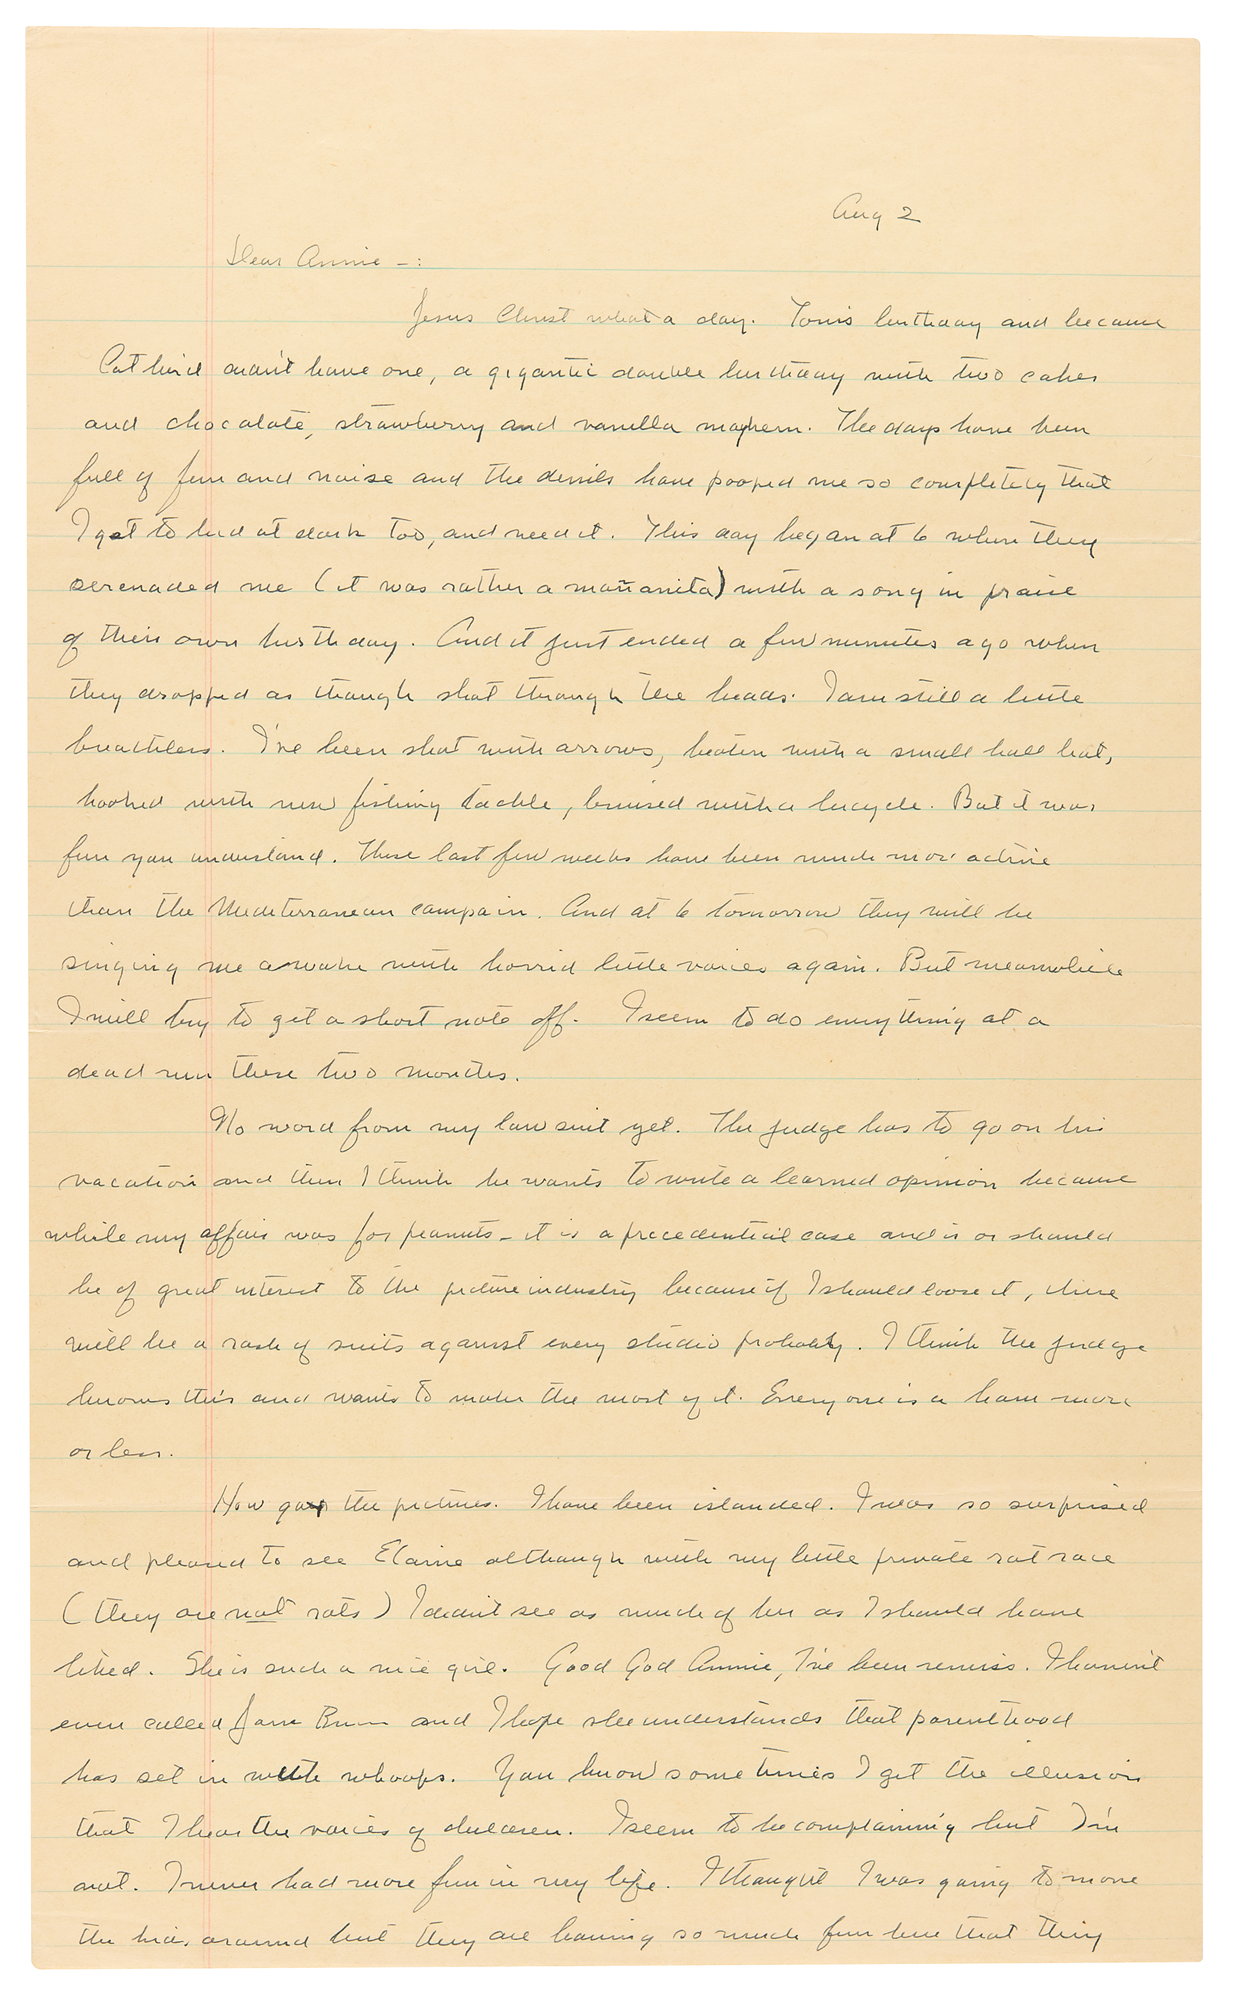 Aug 2
Dear Annie —:
Jesus Christ what a day. Tom's birthday and because
Catbird didn't have one, a gigantic double birthday with two cakes
and chocolate, strawberry and vanilla mayhem. The days have been
full of fun and noise and the devils have pooped me so completely that
I get to bed at dark too, and need it. This day began at 6 when they
serenaded me (it was rather a mañanita) with a song in praise
of their own birthday. And it just ended a few minutes ago when
they dropped as though shot through the heads. I am still a little
breathless. I've been shot with arrows, beaten with a small ball bat,
hooked with new fishing tackle, bruised with a bicycle. But it was
fun you understand. These last few weeks have been much more active
than the Mediterranean campain. And at 6 tomorrow they will be
singing me awake with horrid little voices again. But meanwhile
I will try to get a short note off. I seem to do everything at a
dead run these two months.
No word from my law suit yet. The judge has to go on his
vacation and then I think he wants to write a learned opinion because
while my affair was for peanuts — it is a precedential case and is or should
be of great interest to the picture industry because if I should loose it, there
will be a rash of suits against every studio probably. I think the judge
knows this and wants to make the most of it. Every one is a ham more
or less.
How goes the pictures. I have been islanded. I was so surprised
and pleased to see Elaine although with my little private rat race
(they are not rats) I didn't see as much of her as I should have
liked. She is such a nice girl. Good God Annie, I've been remiss. I haven't
even called Jane and I hope she understands that parenthood
has set in with whoops. You know sometimes I get the illusion
that I hear the voices of children. I seem to be complaining but I'm
not. I never had more fun in my life. I thought I was going to move
the kids around but they are having so much fun here that they